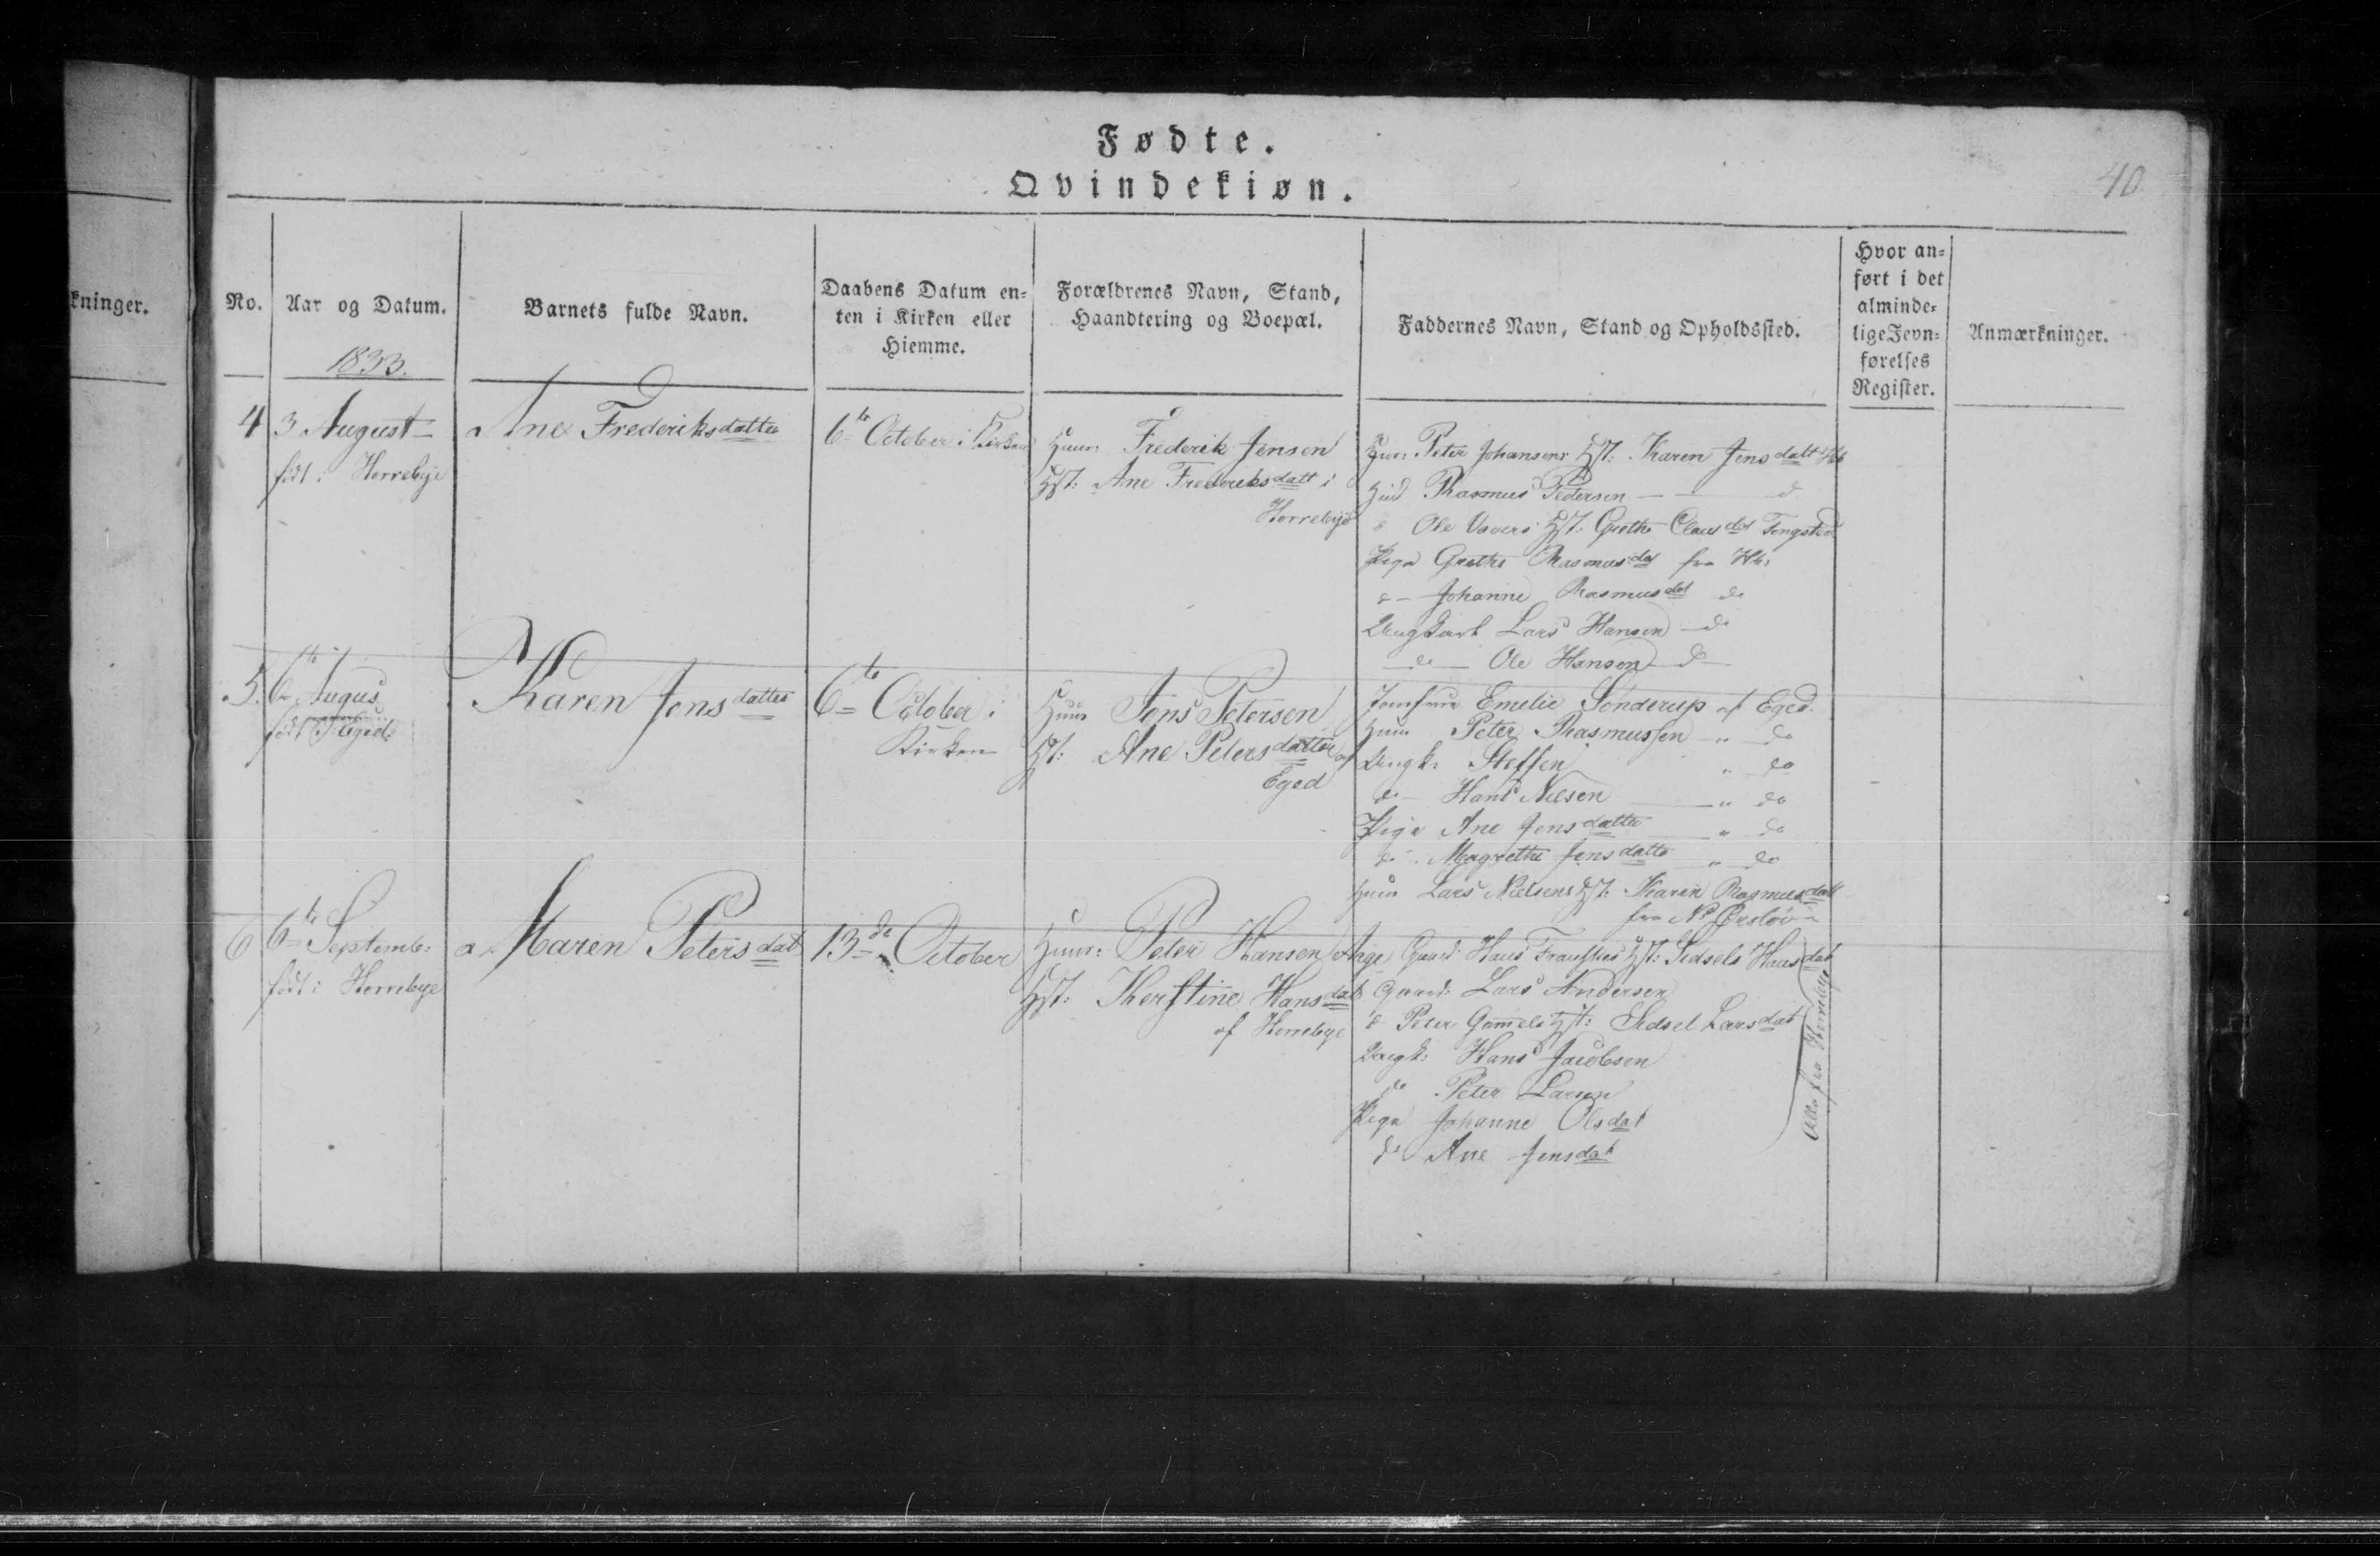 Fødte.
Qvindekiøn.
40
kninger.
No.
Aar og Datum.
1833.
Barnets fulde Navn.
Daabens Datum en-
ten i Kirken eller
Hiemme.
Forældrenes Navn, Stand,
Haandtering og Boepæl.
Faddernes Navn, Stand og Opholdssted.
Hvor an-
ført i det
alminde-
lige Jevn-
førelses
Register.
Anmærkninger.
4
3 August
født i Horrebye
Ane Frederiksdatter
6te October i Kirken
Huus: Frederik Jensen
Hst: Ane Frederiksdatt i
Horrebye
Huus: Peter Johansens Hst: Karen Jensdatt
Rasmus Pedersen
Ole Hst: Grethe Clausdat Tengsted
Pige Grethe Rasmusdat fra
d- Johanne Rasmusdat do
Ungkarl Lars Hansen do
do Ole Hansen do
5.
6te Augus
født i Eged
Karen Jensdatter
6te October i
Kirken
Huus Jens Petersen
Hst: Ane Petersdatter af
Eged
Jomfrue Emelie Sønderup af Eged.
Huus Peter Rasmussen " do
Ungk: Steffen " do
do Hans Nielsen " do
Pige Ane Jensdatter " do
do Magrethe Jensdatte " do
Huus Lars Nielsens Hst: Karen Rasmusdatt
fra Nr Ørsløv
6
6te Septemb:
født i Horrebye
Maren Petersdat
13de October
Huus: Peter Hansen
Hst: Kerstine Hansdat
af Horrebye
Gaard: Hans Hst: Sidsele Hansdat
Gaard: Lars Andersen
d Peter Hst: Sidsel Larsdat
Ungk: Hans Jacobsen
do Peter Larsen
Pige Johanne Olsdat
do Ane Jensdat
Alle fra Horrebye